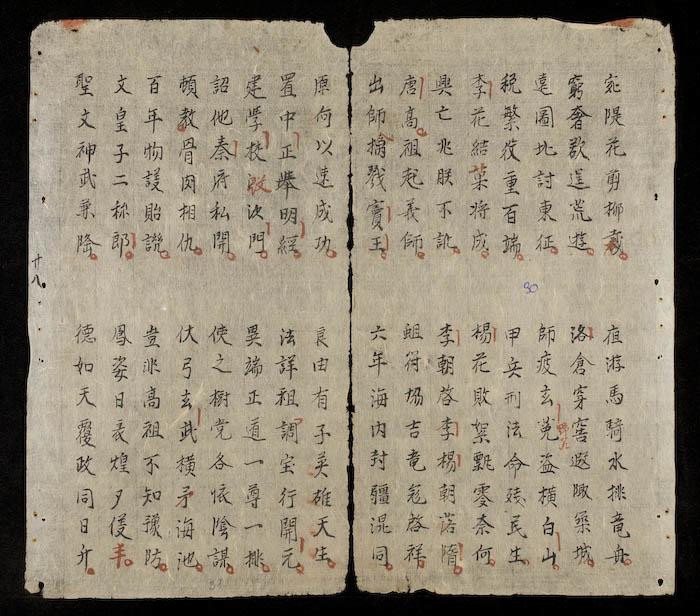 隄花剪柳裁
夜游馬騎水挑竜舟
窮奢欲逞荒遊
洛倉穿窖遐陬築城
遠圖北討東征
師疲玄菟盜橫白山
税繁役重百端
甲兵刑法命殘民生
李花結菓将成
楊花敗絮飄零奈何
興亡兆朕不訛
李朝啓李楊朝落隋
唐高祖起義師
符場吉竜冠啓祥
出師擒戮竇王
六年海内封疆混同
原何以速成功
良由有子英雄天生
置中正舉明經
法詳祖調宝行開元
建學校啟沙門
異端正道一尊一排
詔他秦府私開
使之樹党各依陰謀
頓教骨肉相仇
伏弓玄武橫矛海池
百年物議貽譏
豈非高祖不知豫防
文皇子二称郎
鳳姿日表煌夕丰
聖文神武秉隆
德如天覆政同日升
廿八